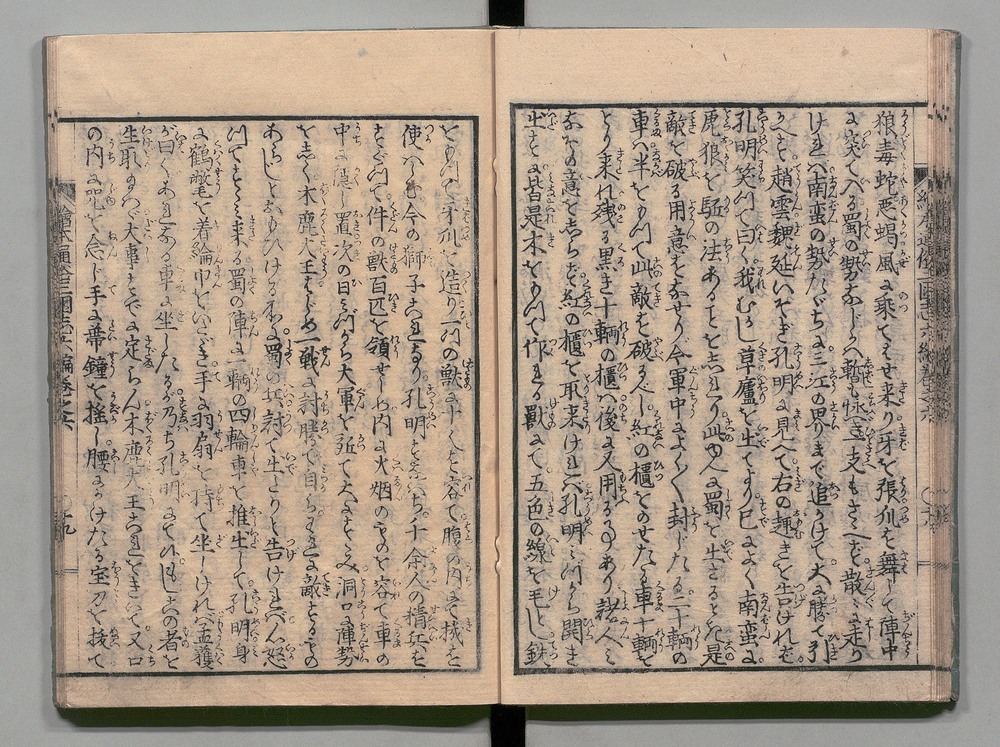 狼毒蛇悪蝎風に乗てはせ来り牙を張爪を舞して陣中
に突て入る蜀の勢なじかは暫も怺ゆ支もさへず散々に走り
ければ南蛮の勢たゞちに三江の界りまで追かけて大に勝て引
かへす趙雲魏延いそぎ孔明に見へて右の趣きを告ければ
孔明笑つて曰く我むかし草廬を出てより已によく南蛮に
虎狼を駆の法あることをしれり此ゆへ蜀を出るとき是
敵を破る用意をなせり今軍中によくよく封じたる二十輌の
車は半をもつて此敵を破るべし紅の櫃をのせたる車十輌を
とり来れ残る黒き十輌の櫃は後に又用る事あり諸人に
なその意をしらず紅の櫃を取来ければ孔明みづから開き
出すに皆是木をもつて作れる獣にて五色の線を毛とし鉄
をもつて牙爪を造り一つの獣に十人を容て腹の内にて機を
使はしむ今の獅子これなり孔明すなはち千余人の精兵を
えらんで件の獣百匹を領せしめ内に火烟のものを容て車の
中に隠し置次の日みづから大軍を進て大にすゝみ洞口に陣勢
をしく木鹿大王はじめ一戦に討勝て自らわれに敵するもの
あらじとおもひける所に蜀の兵討て出たりと告ければ大に怒
つてすゝみ来る蜀の陣に一輌の四輪車を推出して孔明身
に鶴氅を着綸巾をいたゞき手に羽扇を持て坐しければ孟獲
が曰くあれなる車に坐したるが乃ち孔明にて候もしこの者を
生取なば大事すでに定らん木鹿大王これをきいて又口
の内に咒を念じ手に蔕鐘を揺し腰にかけたる宝刀を抜て
繪本通俗三國志六編巻之六
十九